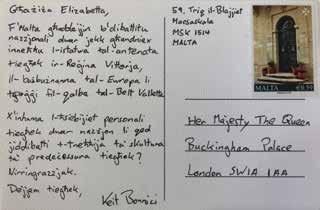 Għażiża Eliżabetta,
F'Malta għaddejjin b'dibattitu
nazzjonali dwar jekk għandniex
inneħħu l-istatwa tal-antenata
tiegħek ir-Reġina Vittorja,
il-basbużnanna tal-Ewropa li
tpoġġi fil-qalba tal-Belt Valletta.
X'inhuma l-ħsibijiet personali
tiegħek dwar nazzjon li qed
jiddibatti t-tneħħija ta' skultura
ta' predeċessura tiegħek?
Nirringrazzjak.
Dejjem tiegħek,
Keit Bonnici
59, Triq il-Blajjiet
Marsaskala
MSK 1514
MALTA
MALTA €0.59
Her Majesty The Queen
Buckingham Palace
London SW1A 1AA